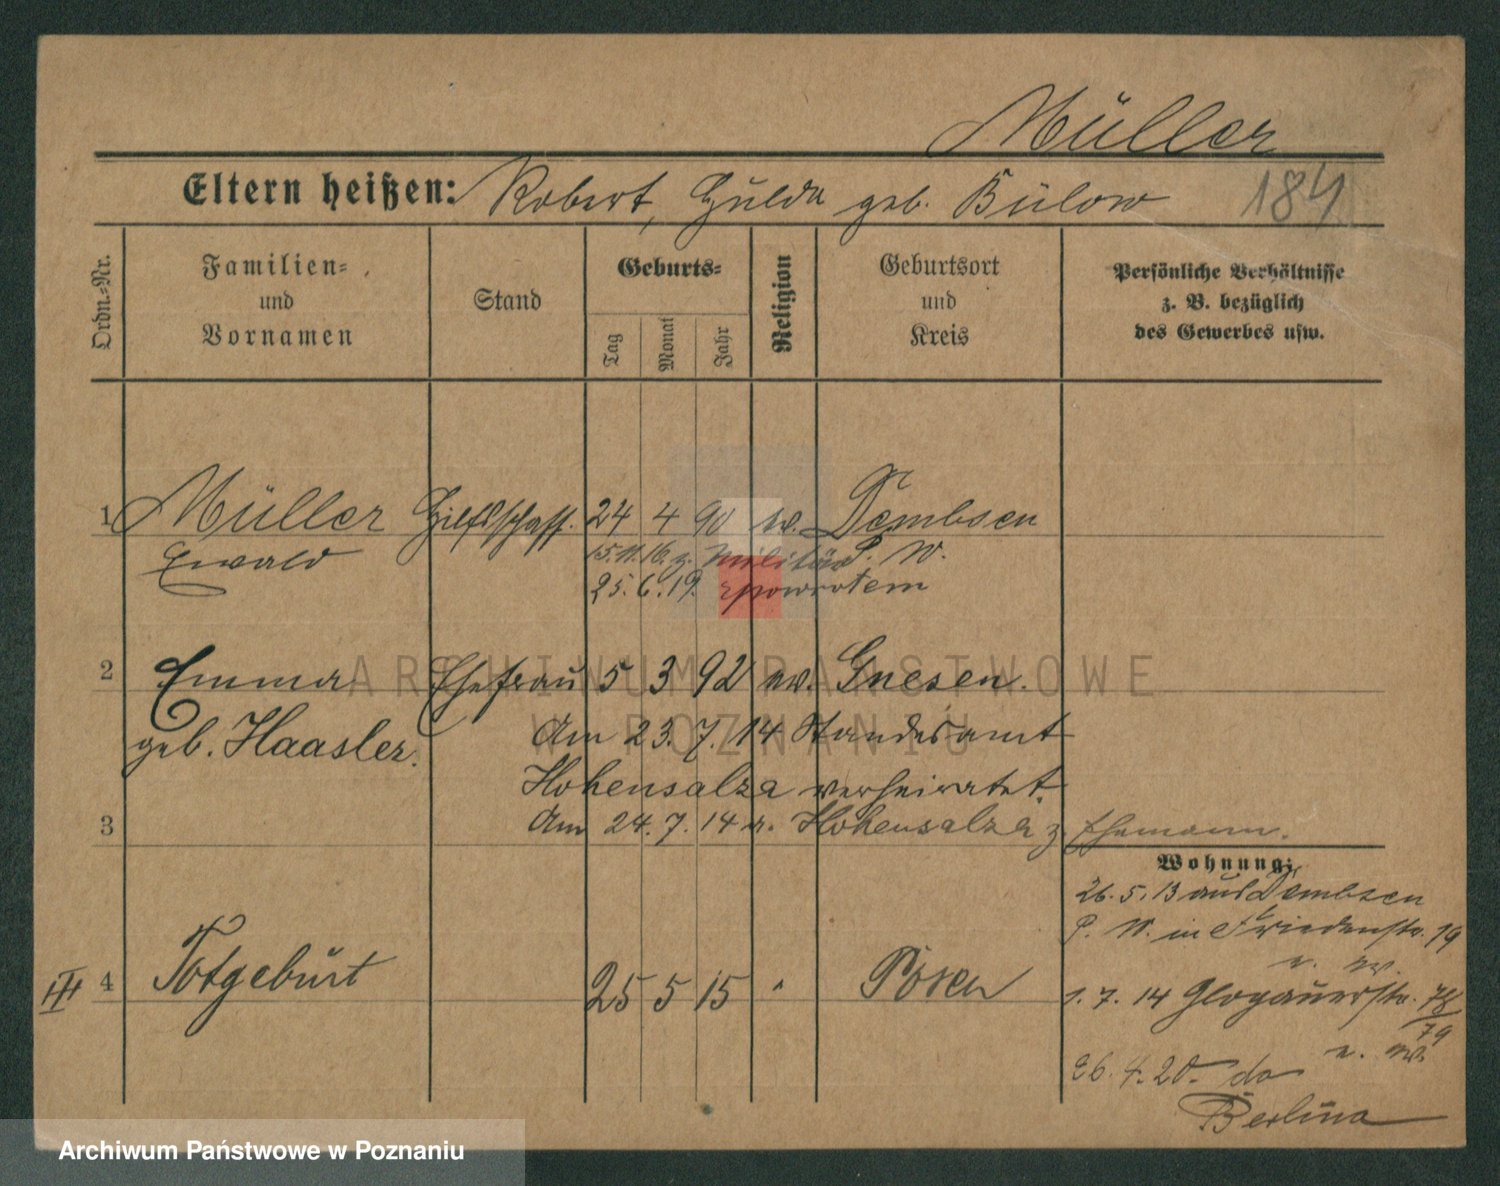 Müller
Eltern heißen: Robert, Hulda geb. Bülow
184
Ordn.-Nr.
Familien-
und
Vornamen
Stand
Geburts-
Tag
Monat
Jahr
Religion
Geburtsort
und
Kreis
Persönliche Verhältnisse
z. B. bezüglich
des Gewerbes usw.
1 Müller Hilfsschaff. 24 4 90 ev. Dembsen
Ewald 15.11.16. z. Militär P. W.
25.6.19. zpowrotem
2 Emma Ehefrau 5 3 92 ev. Gnesen.
geb. Haasler. Am 23.7.14 Standesamt
Hohensalza verheiratet.
3 Am 24.7.14 v. Hohensalza z. Ehemann.
Wohnung:
26.5.13 aus Dembsen
P. W. in Friedenstr. 19
III 4 Totgeburt 25 5 15 Posen
1.7.14 Glogauerstr. 78/79
26.4.20. do
Berlina
ARCHIWUM PAŃSTWOWE
W POZNANIU
Archiwum Państwowe w Poznaniu